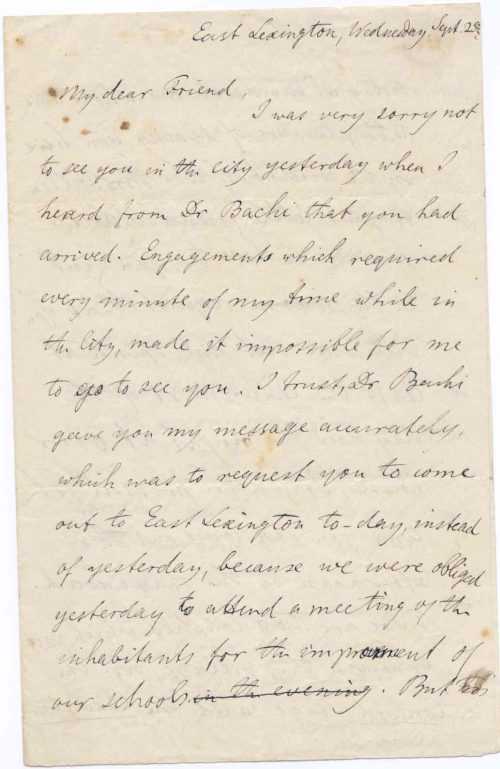 East Lexington, Wednesday, Sept. 28.
My dear Friend,
I was very sorry not
to see you in the city yesterday when I
heard from Dr Bachi that you had
arrived. Engagements which required
every minute of my time while in
the City, made it impossible for me
to go to see you. I trust, Dr Bachi
gave you my message accurately,
which was to request you to come
out to East Lexington to-day, instead
of yesterday, because we were obliged
yesterday to attend a meeting of the
inhabitants for the improvement of
our schools in the evening. But